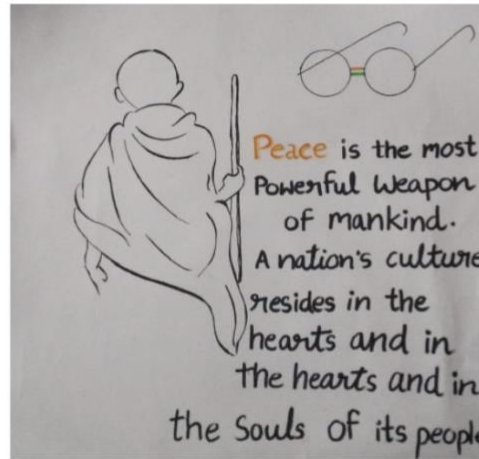 Peace is the most
Powerful Weapon
of mankind.
A nation's culture
resides in the
hearts and in
the hearts and in
the Souls of its people